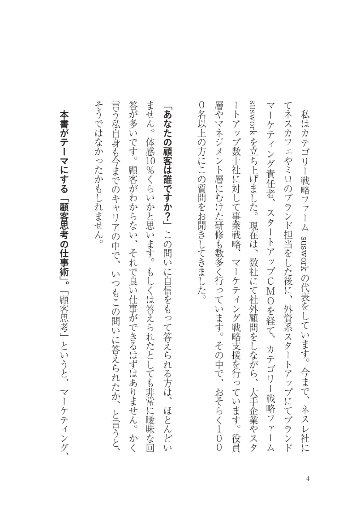 私はカテゴリー戦略ファーム suswork の代表をしています。今まで、ネスレ社に
てネスカフェやミロのブランド担当をした後に、外資系スタートアップにてブランド
マーケティング責任者、スタートアップCMOを経て、カテゴリー戦略ファーム
suswork を立ち上げました。現在は、数社にて社外顧問をしながら、大手企業やスタ
ートアップ数十社に対して事業戦略、マーケティング戦略支援を行っています。役員
層やマネジメント層にむけた研修も数多く行っています。その中で、おそらく100
0名以上の方にこの質問をお聞きしてきました。
「あなたの顧客は誰ですか？」この問いに自信をもって答えられる方は、ほとんどい
ません。体感10％くらいかと思います。もしくは答えられたとしても非常に曖昧な回
答が多いです。顧客がわからない、それで良い仕事ができるはずはありません。かく
言う私自身も今までのキャリアの中で、いつもこの問いに答えられたか、と言うと、
そうではなかったかもしれません。
本書がテーマにする「顧客思考の仕事術」。「顧客思考」というと、マーケティング、
4